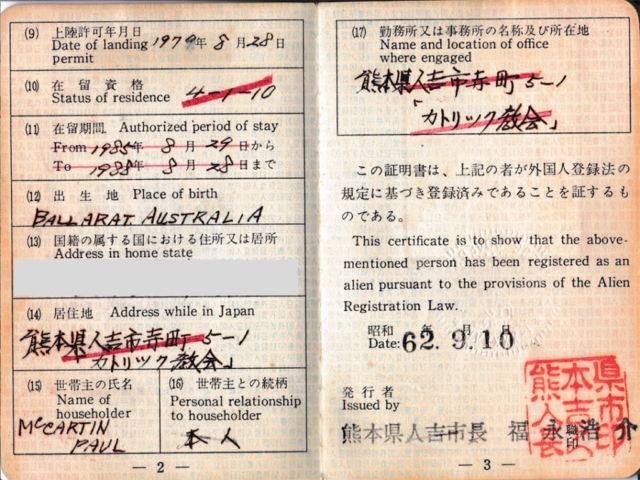 (9) 上陸許可年月日
Date of landing 1979年 8月28日
permit
(10) 在留資格
Status of residence 4-1-10
(11) 在留期間 Authorized period of stay
From 1985年 8月 29日から
To 1988年 8月 28日まで
(12) 出生地 Place of birth
BALLARAT AUSTRALIA
(13) 国籍の属する国における住所又は居所
Address in home state
(14) 居住地 Address while in Japan
熊本県人吉市寺町5-1
カトリック教会」
(15) 世帯主の氏名
Name of
householder
McCARTIN
PAUL
(16) 世帯主との続柄
Personal relationship
to householder
本人
— 2 —
(17) 勤務所又は事務所の名称及び所在地
Name and location of office
where engaged
熊本県人吉市寺町5-1
「カトリック教会」
この証明書は、上記の者が外国人登録法の
規定に基づき登録済みであることを証するも
のである。
This certificate is to show that the above-
mentioned person has been registered as an
alien pursuant to the provisions of the Alien
Registration Law.
昭和 年 月 日
Date: 62. 9. 10
発行者
Issued by
熊本県人吉市長 福永浩介
職印
熊本県人吉市長印
— 3 —